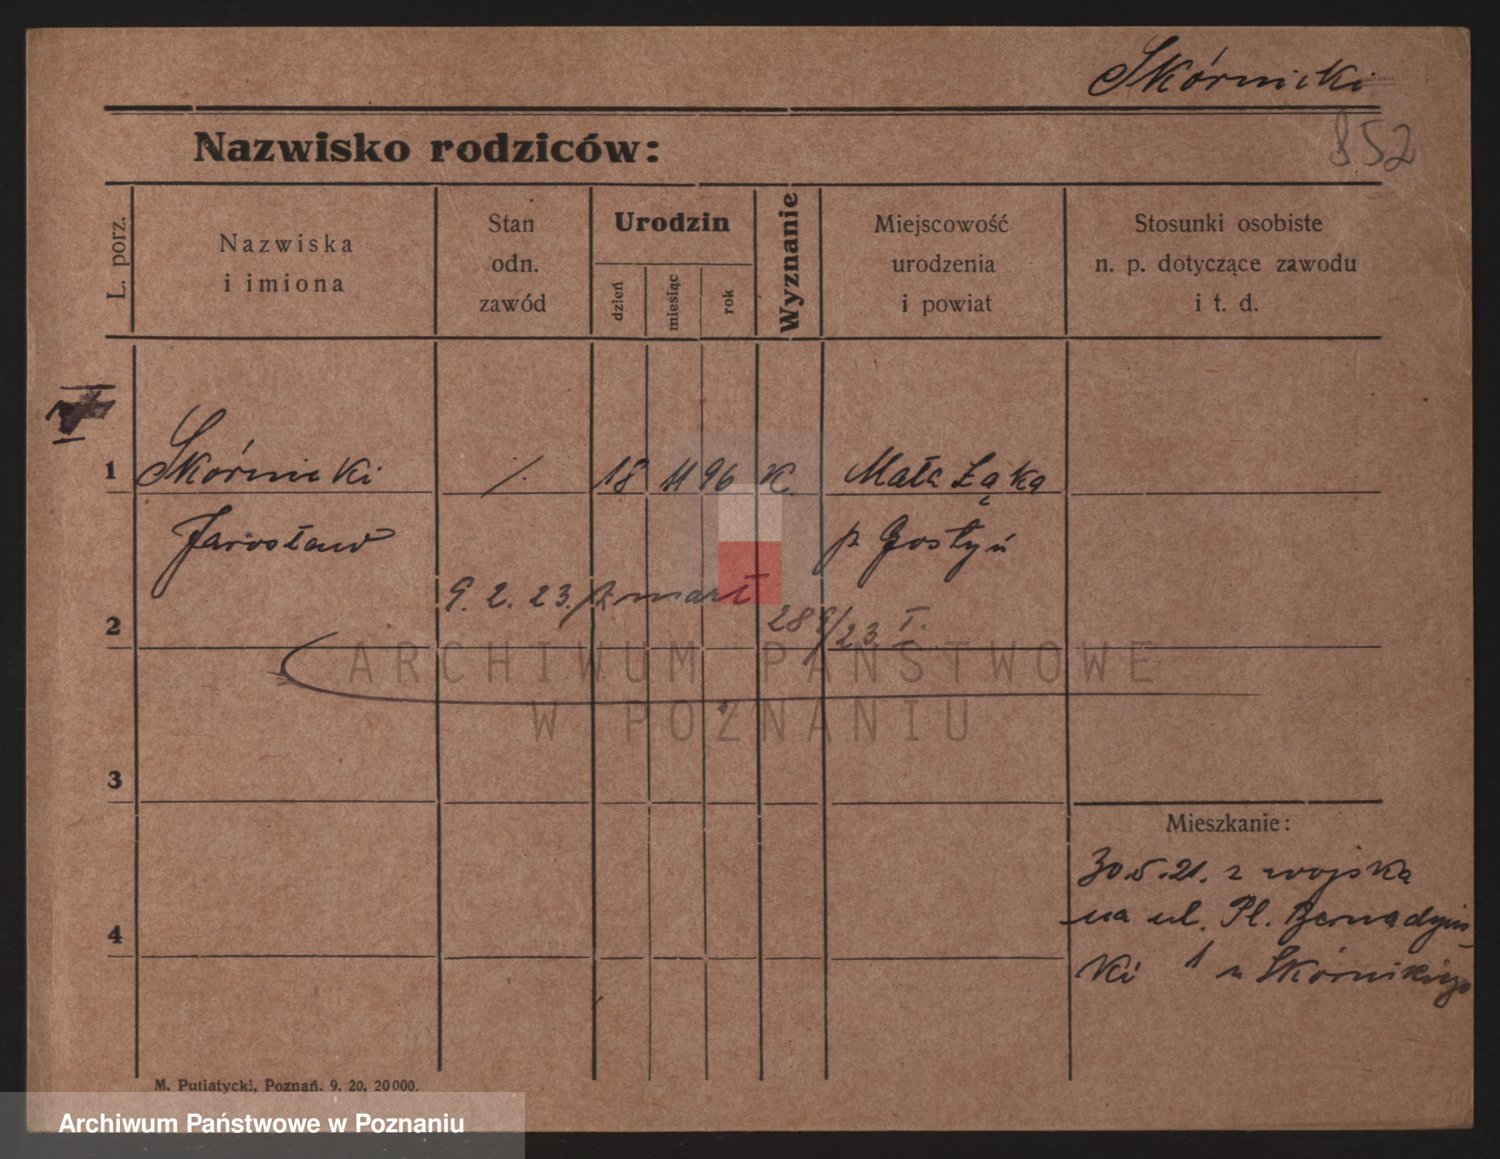 Skórnicki
Nazwisko rodziców:
852
L. porz.
Nazwiska
i imiona
Stan
odn.
zawód
Urodzin
dzień
miesiąc
rok
Wyznanie
Miejscowość
urodzenia
i powiat
Stosunki osobiste
n. p. dotyczące zawodu
i t. d.
1 Skórnicki / 18 11 96 K. Mała Łąka
Jarosław p Gostyń
9. 2. 23. zmarł
2
ARCHIWUM PAŃSTWOWE
W POZNANIU
3
Mieszkanie:
30.5.21. z wojska
na ul. Pl. Bernadyń-
4
ki 1 u Skórnickiego
M. Putiatycki, Poznań. 9. 20. 20000.
Archiwum Państwowe w Poznaniu